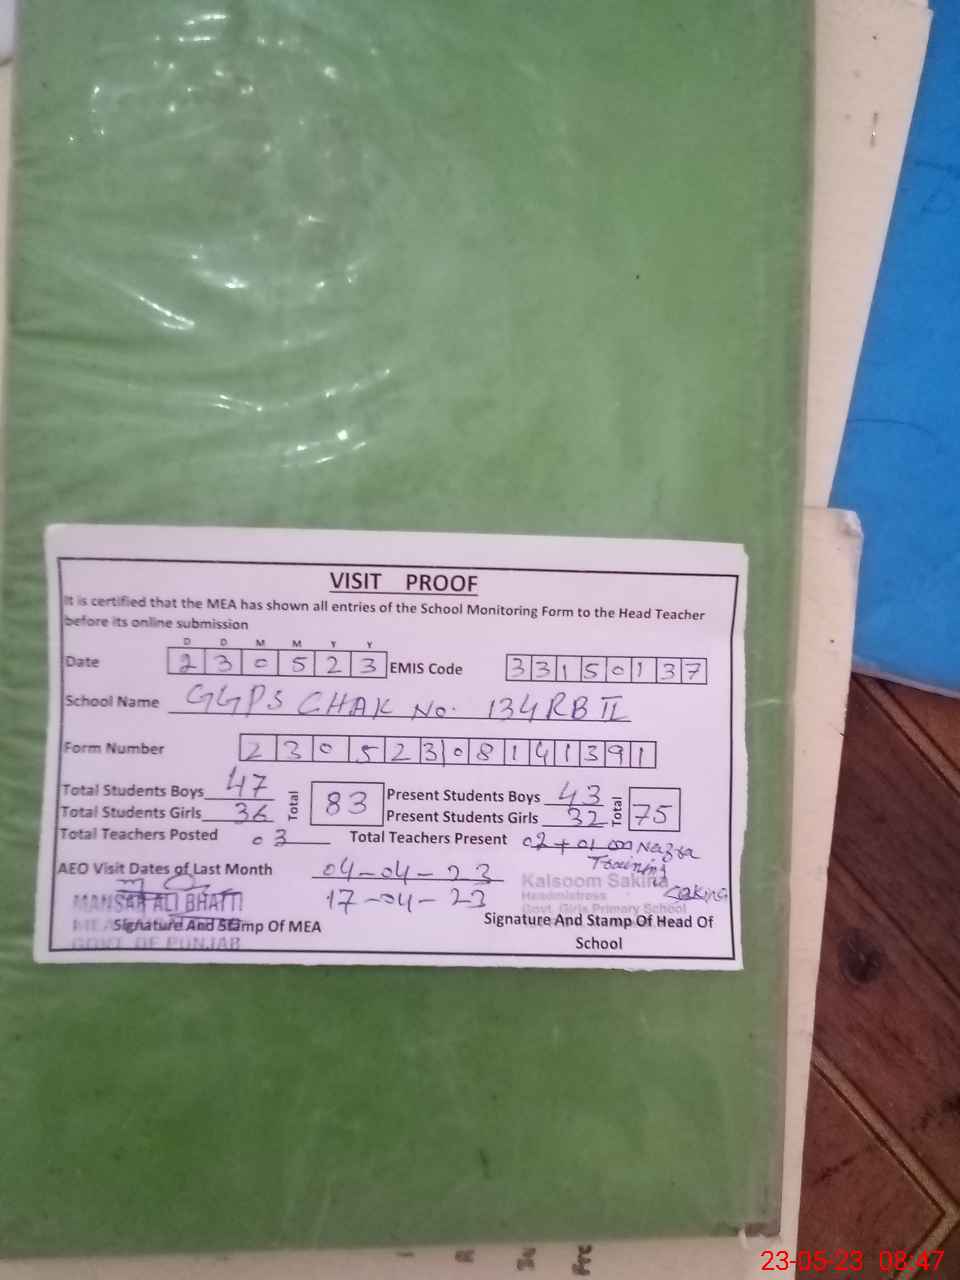 VISIT PROOF
It is certified that the MEA has shown all entries of the School Monitoring Form to the Head Teacher
before its online submission
D D M M Y Y
Date 2 3 0 5 2 3 EMIS Code 3 3 1 5 0 1 3 7
School Name GGPS CHAK No. 134RB II
Form Number 2 3 0 5 2 3 0 8 1 4 1 3 9 1
Total Students Boys 47 Total 83 Present Students Boys 43 Total 75
Total Students Girls 36 Present Students Girls 32
Total Teachers Posted 03 Total Teachers Present 02 + 01 on Nazra
Training
AEO Visit Dates of Last Month 04-04-23
17-04-23
Kalsoom Sakina
Sakina
Headmistress
Govt. Girls Primary School
MANSAB ALI BHATTI
MEA
Signature And Stamp Of MEA
GOVT OF PUNJAB
Signature And Stamp Of Head Of
School
23-05-23 08:47